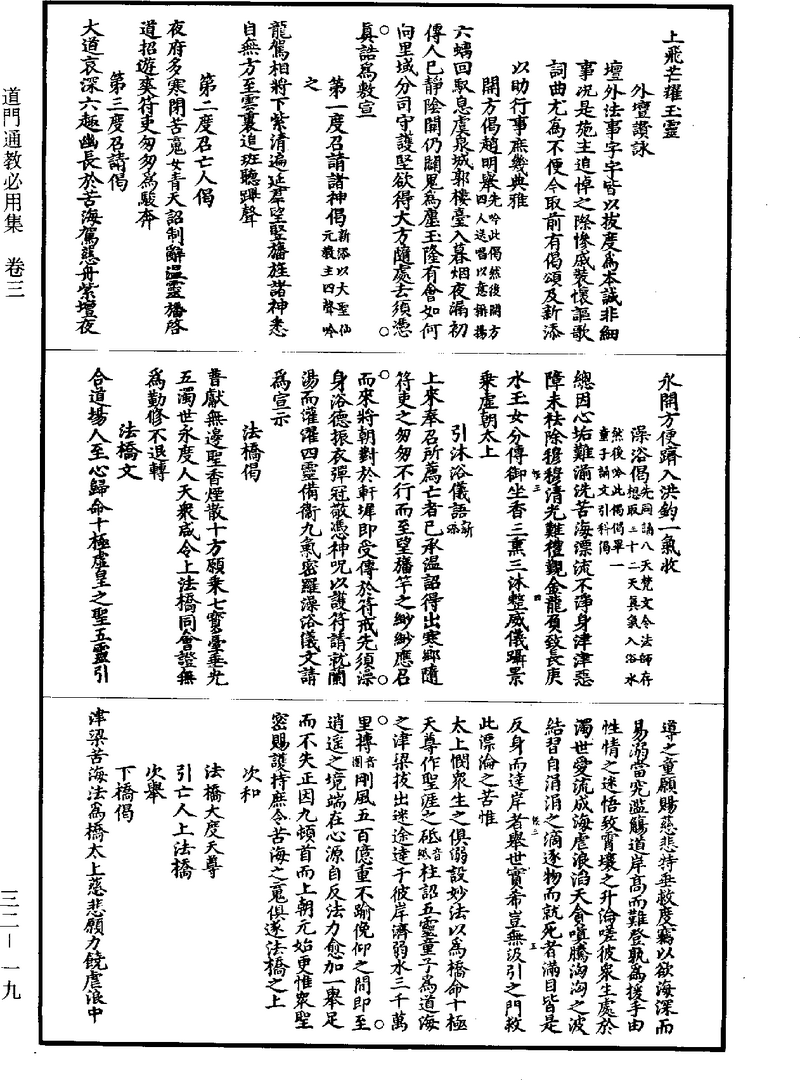 上飛芒耀玉靈
外壇讚詠
壇外法事字字皆以拔度爲本誠非細
事況是施主追悼之際慘戚裝懷謳歌
詞曲尤爲不便今取前有偈頌及新添
以助行事庶幾典雅
開方偈趙明舉先吟此偈然後開方四人送唱以意斟揚
六螭回馭息虞泉城郭樓臺入暮烟夜漏初
傳人已靜陰關仍闢鬼爲塵玉隆有會如何
向里域分司守護堅欲得大方隨處去須憑
眞誥爲敷宣
第一度召請諸神偈新添以大聖仙元教主四聲吟之
龍駕相將下紫清遍延羣望堅旛旌諸神悉
自無方至雲裏追班聽蹕聲
第二度召亡人偈
夜府多寒閉苦魂女青天詔制酆溫靈旛啓
道招遊爽符吏匆匆爲駿奔
第三度召請偈
大道哀深六趣幽長於苦海駕慈舟紫壇夜
永開方便躋入洪鈞一氣收
澡浴偈先同誦八天梵文令法師存想取三十二天眞氣入浴水然後吟此偈偈畢一童子誦文引科偈
總因心垢難湔洗苦海漂流不淨身津津惡
障未袪除穆穆清光難禮覲金龍負致長庚
水玉女分傳御坐香三熏三沐整威儀躡景
乘虛朝太上
引沐浴儀語新添
上來奉召所薦亡者已承溫詔得出寒鄉隨
符吏之匆匆不行而至望旛竿之緲緲應召
而來將朝對於軒墀即受傳於符戒先須澡
身浴德振衣彈冠敬憑神呪以護符請就蘭
湯而灌濯四靈備衞九氣密羅澡浴儀文請
爲宣示
法橋偈
普獻無邊聖香煙散十方願乘七寶臺垂光
五濁世永度人天衆咸令上法橋同會證無
爲勤修不退轉
法橋文
合道場人至心歸命十極虛皇之聖五靈引
導之童願賜慈悲特垂救度竊以欲海深而
易溺當究濫觴道岸高而難登孰爲援手由
性情之迷悟致霄壤之升淪嗟彼衆生處於
濁世愛流成海虐浪滔天貪嗔騰洶洶之波
結習自涓涓之滴逐物而就死者滿目皆是
反身而達岸者舉世實希豈無汲引之門救
此漂淪之苦惟
太上憫衆生之俱溺設妙法以爲橋命十極
天尊作聖涯之砥音紙柱詔五靈童子爲道海
之津梁拔出迷途達于彼岸濟弱水三千萬
里摶音團剛風五百億重不踰俛仰之間即至
逍遥之境端在心源自反法力愈加一舉足
而不失正因九頓首而上朝元始更惟衆聖
密賜護持庶令苦海之魂俱遂法橋之上
次和
法橋大度天尊
引亡人上法橋
次舉
下橋偈
津梁苦海法爲橋太上慈悲願力饒虐浪中
道門通教必用集 卷三
三二—一九